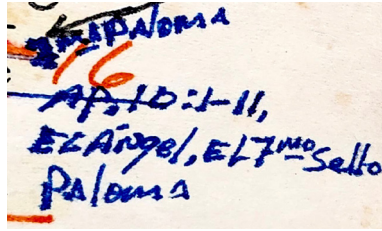 PALOMA
16
AP, 10:1-11,
EL Ángel, EL 7mo Sello
Paloma